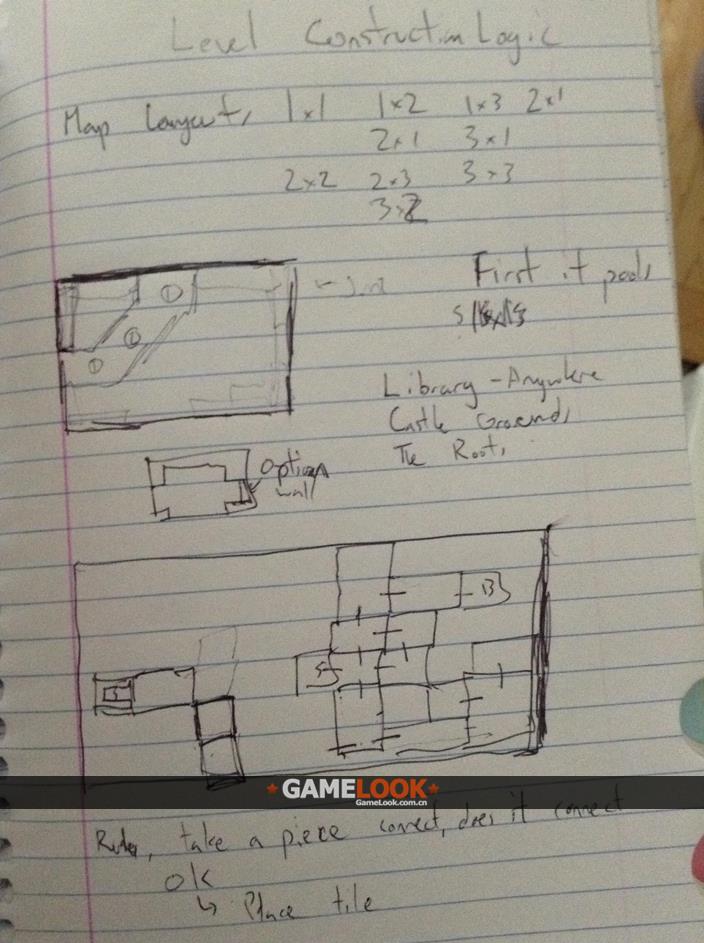 Level Construction Logic
Map Layout, 1x1 1x2 1x3 2x1
2x1 3x1
2x2 2x3 3x3
3x2
First it
①
①
①
Library - Anywhere
Castle Grounds
The Roots
Option
wall
B
S
S
★GAMELOOK★
GameLook.com.cn
Rules, take a piece connect, does it connect
OK
↳ Place tile